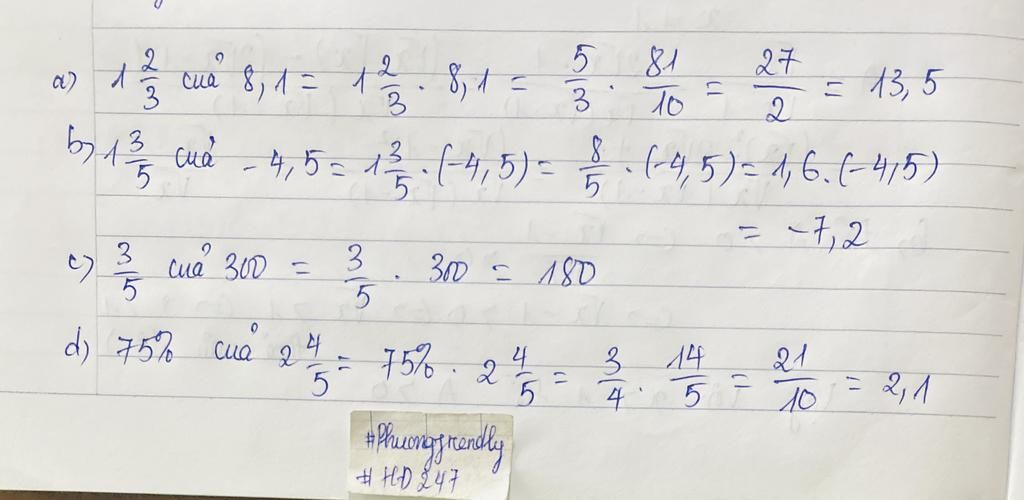 a) 1 2/3 cuả 8,1 = 1 2/3 . 8,1 = 5/3 . 81/10 = 27/2 = 13,5
b) 1 3/5 cuả - 4,5 = 1 3/5 . (-4,5) = 8/5 . (-4,5) = 1,6. (-4,5)
= -7,2
c) 3/5 cuả 300 = 3/5 . 300 = 180
d) 75% cuả 2 4/5 = 75% . 2 4/5 = 3/4 . 14/5 = 21/10 = 2,1
#Phuongfrendly
#HD247